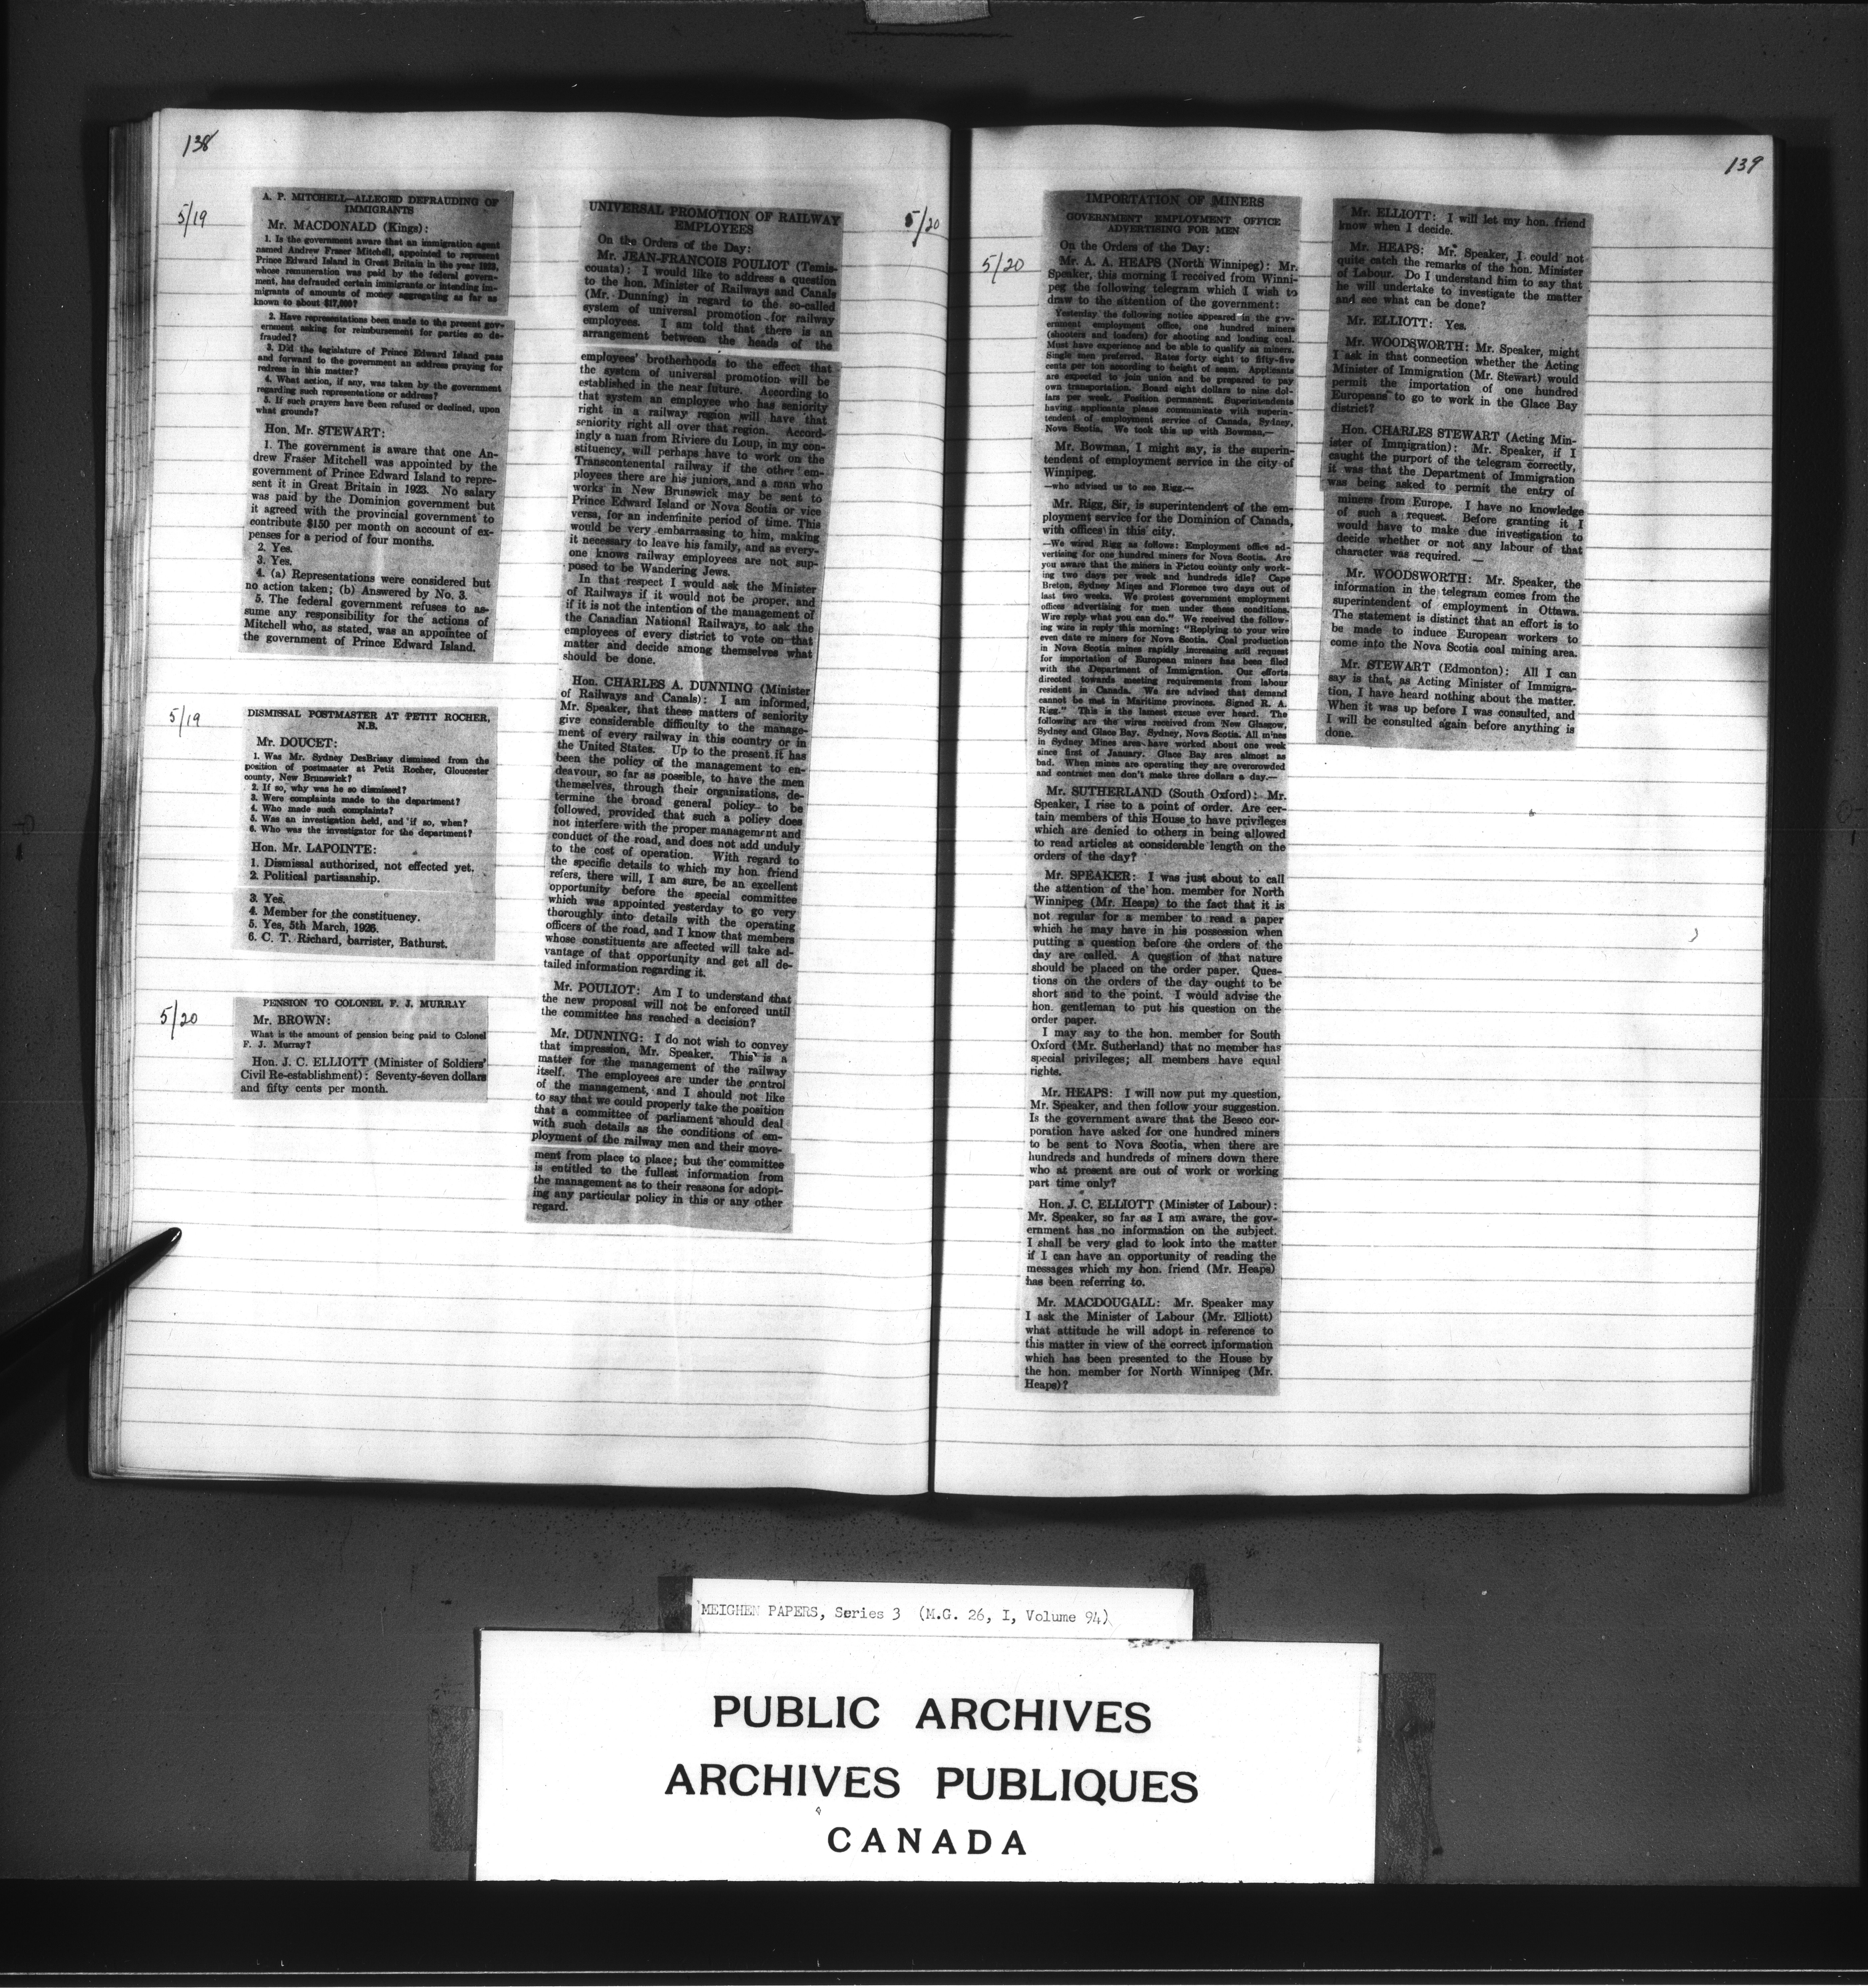 138
5/19
A. P. MITCHELL—ALLEGED DEFRAUDING OF
IMMIGRANTS
Mr. MACDONALD (Kings):
1. Is the government aware that an immigration agent
named Andrew Fraser Mitchell, appointed to represent
Prince Edward Island in Great Britain in the year 1923,
whose remuneration was paid by the federal govern-
ment, has defrauded certain immigrants or intending im-
migrants of amounts of money aggregating as far as
known to about $17,000?
2. Have representations been made to the present gov-
ernment asking for reimbursement for parties so de-
frauded?
3. Did the legislature of Prince Edward Island pass
and forward to the government an address praying for
redress in this matter?
4. What action, if any, was taken by the government
regarding such representations or address?
5. If such prayers have been refused or declined, upon
what grounds?
Hon. Mr. STEWART:
1. The government is aware that one An-
drew Fraser Mitchell was appointed by the
government of Prince Edward Island to repre-
sent it in Great Britain in 1923. No salary
was paid by the Dominion government but
it agreed with the provincial government to
contribute $150 per month on account of ex-
penses for a period of four months.
2. Yes.
3. Yes.
4. (a) Representations were considered but
no action taken; (b) Answered by No. 3.
5. The federal government refuses to as-
sume any responsibility for the actions of
Mitchell who, as stated, was an appointee of
the government of Prince Edward Island.
5/19
DISMISSAL POSTMASTER AT PETIT ROCHER,
N.B.
Mr. DOUCET:
1. Was Mr. Sydney DesBrisay dismissed from the
position of postmaster at Petit Rocher, Gloucester
county, New Brunswick?
2. If so, why was he so dismissed?
3. Were complaints made to the department?
4. Who made such complaints?
5. Was an investigation held, and if so, when?
6. Who was the investigator for the department?
Hon. Mr. LAPOINTE:
1. Dismissal authorized, not effected yet.
2. Political partisanship.
3. Yes.
4. Member for the constituency.
5. Yes, 5th March, 1926.
6. C. T. Richard, barrister, Bathurst.
5/20
PENSION TO COLONEL F. J. MURRAY
Mr. BROWN:
What is the amount of pension being paid to Colonel
F. J. Murray?
Hon. J. C. ELLIOTT (Minister of Soldiers'
Civil Re-establishment): Seventy-seven dollars
and fifty cents per month.
5/20
UNIVERSAL PROMOTION OF RAILWAY
EMPLOYEES
On the Orders of the Day:
Mr. JEAN-FRANCOIS POULIOT (Temis-
couata): I would like to address a question
to the hon. Minister of Railways and Canals
(Mr. Dunning) in regard to the so-called
system of universal promotion for railway
employees. I am told that there is an
arrangement between the heads of the
employees' brotherhoods to the effect that
the system of universal promotion will be
established in the near future. According to
that system an employee who has seniority
right in a railway region will have that
seniority right all over that region. Accord-
ingly a man from Riviere du Loup, in my con-
stituency, will perhaps have to work on the
Transcontenental railway if the other em-
ployees there are his juniors, and a man who
works in New Brunswick may be sent to
Prince Edward Island or Nova Scotia or vice
versa, for an indenfinite period of time. This
would be very embarrassing to him, making
it necessary to leave his family, and as every-
one knows railway employees are not sup-
posed to be Wandering Jews.
In that respect I would ask the Minister
of Railways if it would not be proper, and
if it is not the intention of the management of
the Canadian National Railways, to ask the
employees of every district to vote on that
matter and decide among themselves what
should be done.
Hon. CHARLES A. DUNNING (Minister
of Railways and Canals): I am informed,
Mr. Speaker, that these matters of seniority
give considerable difficulty to the manage-
ment of every railway in this country or in
the United States. Up to the present it has
been the policy of the management to en-
deavour, so far as possible, to have the men
themselves, through their organizations, de-
termine the broad general policy to be
followed, provided that such a policy does
not interfere with the proper management and
conduct of the road, and does not add unduly
to the cost of operation. With regard to
the specific details to which my hon. friend
refers, there will, I am sure, be an excellent
opportunity before the special committee
which was appointed yesterday to go very
thoroughly into details with the operating
officers of the road, and I know that members
whose constituents are affected will take ad-
vantage of that opportunity and get all de-
tailed information regarding it.
Mr. POULIOT: Am I to understand that
the new proposal will not be enforced until
the committee has reached a decision?
Mr. DUNNING: I do not wish to convey
that impression, Mr. Speaker. This is a
matter for the management of the railway
itself. The employees are under the control
of the management, and I should not like
to say that we could properly take the position
that a committee of parliament should deal
with such details as the conditions of em-
ployment of the railway men and their move-
ment from place to place; but the committee
is entitled to the fullest information from
the management as to their reasons for adopt-
ing any particular policy in this or any other
regard.
139
5/20
IMPORTATION OF MINERS
GOVERNMENT EMPLOYMENT OFFICE
ADVERTISING FOR MEN
On the Orders of the Day:
Mr. A. A. HEAPS (North Winnipeg): Mr.
Speaker, this morning I received from Winni-
peg the following telegram which I wish to
draw to the attention of the government:
Yesterday the following notice appeared in the gov-
ernment employment office, one hundred miners
(shooters and loaders) for shooting and loading coal.
Must have experience and be able to qualify as miners.
Single men preferred. Rates forty eight to fifty-five
cents per ton according to height of seam. Applicants
are expected to join union and be prepared to pay
own transportation. Board eight dollars to nine dol-
lars per week. Position permanent. Superintendents
having applicants please communicate with superin-
tendent of employment service of Canada, Sydney,
Nova Scotia. We took this up with Bowman,—
Mr. Bowman, I might say, is the superin-
tendent of employment service in the city of
Winnipeg.
—who advised us to see Rigg.—
Mr. Rigg, Sir, is superintendent of the em-
ployment service for the Dominion of Canada,
with offices in this city.
—We wired Rigg as follows: Employment office ad-
vertising for one hundred miners for Nova Scotia. Are
you aware that the miners in Pictou county only work-
ing two days per week and hundreds idle? Cape
Breton, Sydney Mines and Florence two days out of
last two weeks. We protest government employment
offices advertising for men under these conditions.
Wire reply what you can do." We received the follow-
ing wire in reply this morning: "Replying to your wire
even date re miners for Nova Scotia. Coal production
in Nova Scotia mines rapidly increasing and request
for importation of European miners has been filed
with the Department of Immigration. Our efforts
directed towards meeting requirements from labour
resident in Canada. We are advised that demand
cannot be met in Maritime provinces. Signed R. A.
Rigg." This is the lamest excuse ever heard. The
following are the wires received from New Glasgow,
Sydney and Glace Bay. Sydney, Nova Scotia. All mines
in Sydney Mines area have worked about one week
since first of January. Glace Bay area almost as
bad. When mines are operating they are overcrowded
and contract men don't make three dollars a day.—
Mr. SUTHERLAND (South Oxford): Mr.
Speaker, I rise to a point of order. Are cer-
tain members of this House to have privileges
which are denied to others in being allowed
to read articles at considerable length on the
orders of the day?
Mr. SPEAKER: I was just about to call
the attention of the hon. member for North
Winnipeg (Mr. Heaps) to the fact that it is
not regular for a member to read a paper
which he may have in his possession when
putting a question before the orders of the
day are called. A question of that nature
should be placed on the order paper. Ques-
tions on the orders of the day ought to be
short and to the point. I would advise the
hon. gentleman to put his question on the
order paper.
I may say to the hon. member for South
Oxford (Mr. Sutherland) that no member has
special privileges; all members have equal
rights.
Mr. HEAPS: I will now put my question,
Mr. Speaker, and then follow your suggestion.
Is the government aware that the Besco cor-
poration have asked for one hundred miners
to be sent to Nova Scotia, when there are
hundreds and hundreds of miners down there
who at present are out of work or working
part time only?
Hon. J. C. ELLIOTT (Minister of Labour):
Mr. Speaker, so far as I am aware, the gov-
ernment has no information on the subject.
I shall be very glad to look into the matter
if I can have an opportunity of reading the
messages which my hon. friend (Mr. Heaps)
has been referring to.
Mr. MACDOUGALL: Mr. Speaker may
I ask the Minister of Labour (Mr. Elliott)
what attitude he will adopt in reference to
this matter in view of the correct information
which has been presented to the House by
the hon. member for North Winnipeg (Mr.
Heaps)?
Mr. ELLIOTT: I will let my hon. friend
know when I decide.
Mr. HEAPS: Mr. Speaker, I could not
quite catch the remarks of the hon. Minister
of Labour. Do I understand him to say that
he will undertake to investigate the matter
and see what can be done?
Mr. ELLIOTT: Yes.
Mr. WOODSWORTH: Mr. Speaker, might
I ask in that connection whether the Acting
Minister of Immigration (Mr. Stewart) would
permit the importation of one hundred
Europeans to go to work in the Glace Bay
district?
Hon. CHARLES STEWART (Acting Min-
ister of Immigration): Mr. Speaker, if I
caught the purport of the telegram correctly,
it was that the Department of Immigration
was being asked to permit the entry of
miners from Europe. I have no knowledge
of such a request. Before granting it I
would have to make due investigation to
decide whether or not any labour of that
character was required. —
Mr. WOODSWORTH: Mr. Speaker, the
information in the telegram comes from the
superintendent of employment in Ottawa.
The statement is distinct that an effort is to
be made to induce European workers to
come into the Nova Scotia coal mining area.
Mr. STEWART (Edmonton): All I can
say is that, as Acting Minister of Immigra-
tion, I have heard nothing about the matter.
When it was up before I was consulted, and
I will be consulted again before anything is
done.
MEIGHEN PAPERS, Series 3 (M.G. 26, I, Volume 94)
PUBLIC ARCHIVES
ARCHIVES PUBLIQUES
CANADA